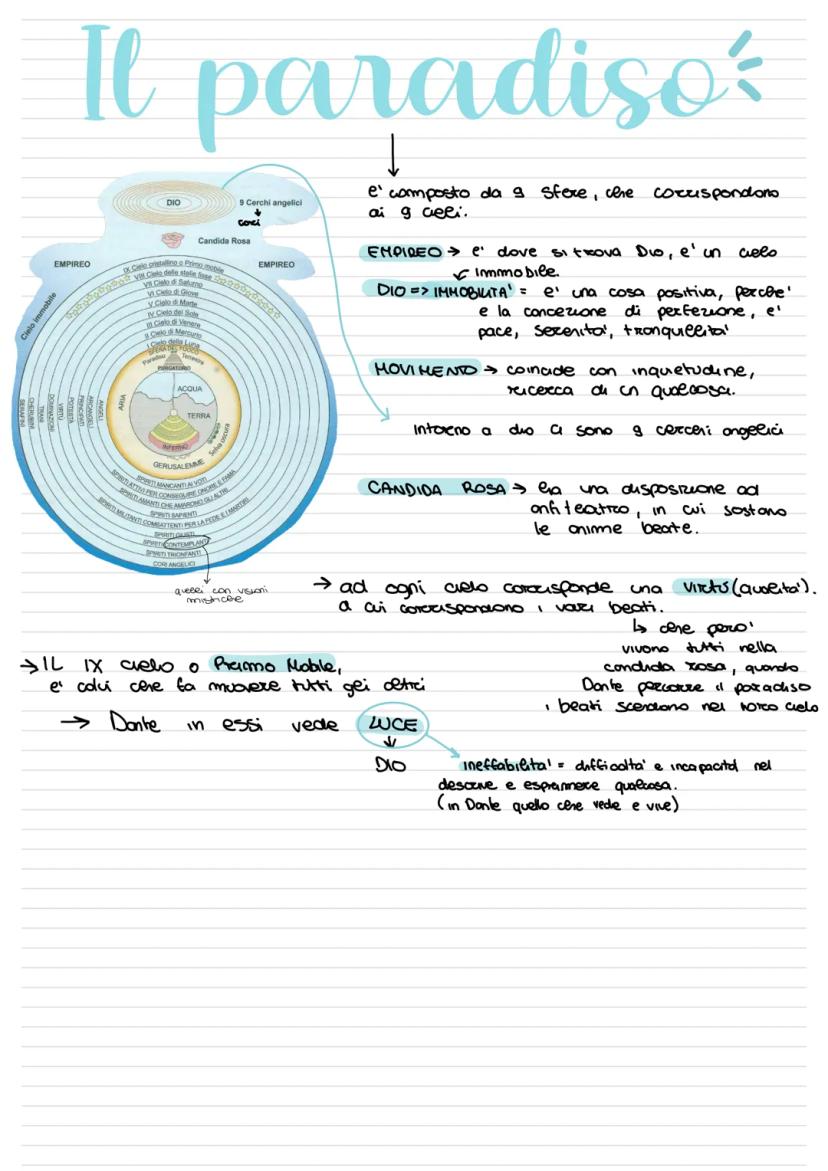 Il paradiso
e' composto da 9 sfere, che corrispondono
ai 9 cieli.
EMPIREO → e' dove si trova Dio, e' un cielo
immobile.
DIO => IMMOBILITA' = e' una cosa positiva, perche'
e la concezione di perfezione, e'
pace, serenita', tranquillita'
MOVIMENTO → coincide con inquietudine,
ricerca di un qualcosa.
Intorno a dio ci sono 9 cerchi angelici
CANDIDA ROSA → ha una disposizione ad
anfiteatro, in cui sostano
le anime beate.
→ ad ogni cielo corrisponde una virtú (qualita').
a cui corrispondono i vari beati.
↳ che pero'
vivono tutti nella
candida rosa, quando
Dante percorre il paradiso
i beati scendono nel loro cielo
→ IL IX cielo o Primo Mobile,
e' colui che fa muovere tutti gli altri
→ Dante in essi vede LUCE
DIO
ineffabilita' = difficoltà e incapacità nel
descrive e esprimere qualcosa.
(in Dante quello che vede e vive)
DIO
9 Cerchi angelici
cori
Candida Rosa
EMPIREO
EMPIREO
Cielo immobile
IX Cielo cristallino o Primo mobile
VIII Cielo delle stelle fisse
VII Cielo di Saturno
VI Cielo di Giove
V Cielo di Marte
IV Cielo del Sole
III Cielo di Venere
II Cielo di Mercurio
I Cielo della Luna
SFERA DEL FUOCO
Paradiso Terrestre
PURGATORIO
ACQUA
ARIA
TERRA
INFERNO
Selva oscura
GERUSALEMME
SERAFINI
CHERUBINI
TRONI
DOMINAZIONI
VIRTÙ
POTESTÀ
PRINCIPATI
ARCANGELI
ANGELI
SPIRITI MANCANTI AI VOTI
SPIRITI ATTIVI PER CONSEGUIRE ONORE E FAMA
SPIRITI AMANTI CHE AMARONO GLI ALTRI
SPIRITI SAPIENTI
SPIRITI MILITANTI COMBATTENTI PER LA FEDE E I MARTIRI
SPIRITI GIUSTI
SPIRITI CONTEMPLANTI
SPIRITI TRIONFANTI
CORI ANGELICI
quelli con visioni
mistiche